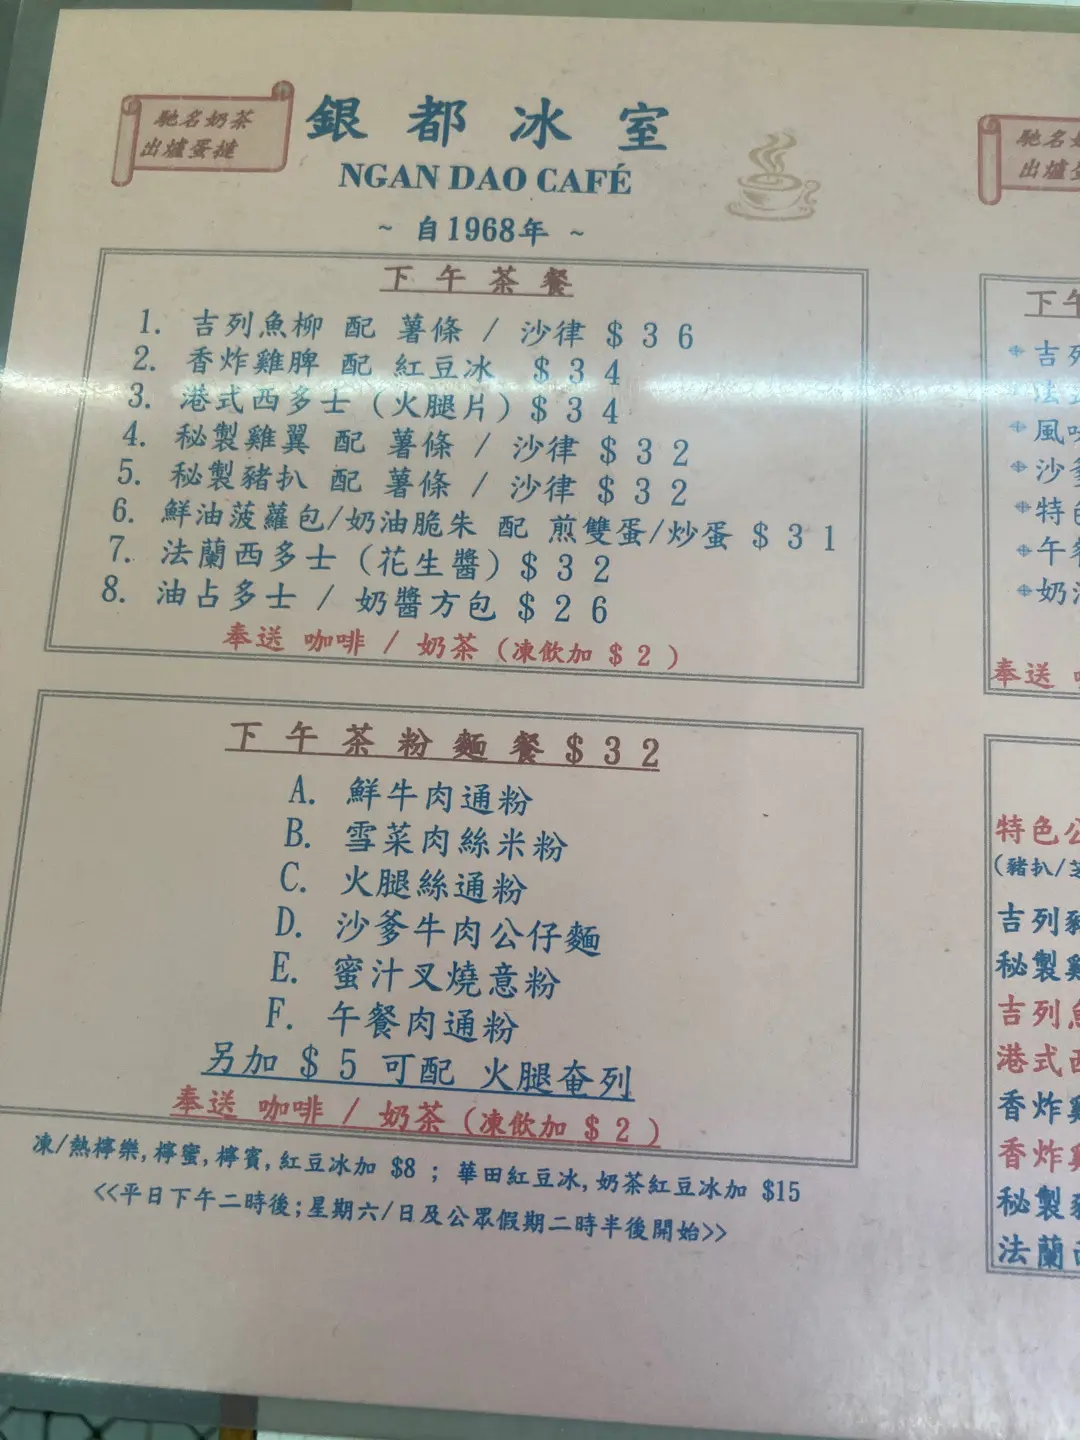 馳名奶茶
出爐蛋撻
銀都冰室
NGAN DAO CAFÉ
~ 自1968年 ~
下午茶餐
1. 吉列魚柳 配 薯條 / 沙律 $36
2. 香炸雞脾 配 紅豆冰 $34
3. 港式西多士 (火腿片) $34
4. 秘製雞翼 配 薯條 / 沙律 $32
5. 秘製豬扒 配 薯條 / 沙律 $32
6. 鮮油菠蘿包/奶油脆朱 配 煎雙蛋/炒蛋 $31
7. 法蘭西多士 (花生醬) $32
8. 油占多士 / 奶醬方包 $26
奉送 咖啡 / 奶茶 (凍飲加 $2)
下午茶粉麵餐$32
A. 鮮牛肉通粉
B. 雪菜肉絲米粉
C. 火腿絲通粉
D. 沙爹牛肉公仔麵
E. 蜜汁叉燒意粉
F. 午餐肉通粉
另加 $5 可配 火腿奄列
奉送 咖啡 / 奶茶 (凍飲加 $2)
凍/熱檸樂,檸蜜,檸賓,紅豆冰加 $8 ; 華田紅豆冰,奶茶紅豆冰加 $15
<<平日下午二時後;星期六/日及公眾假期二時半後開始>>
馳名
出爐
下午
吉列
法
風
沙爹
特色
午餐
奶
奉送
特色公
(豬扒/芝
吉列豬
秘製雞
吉列魚
港式西
香炸雞
香炸雞
秘製豬
法蘭西